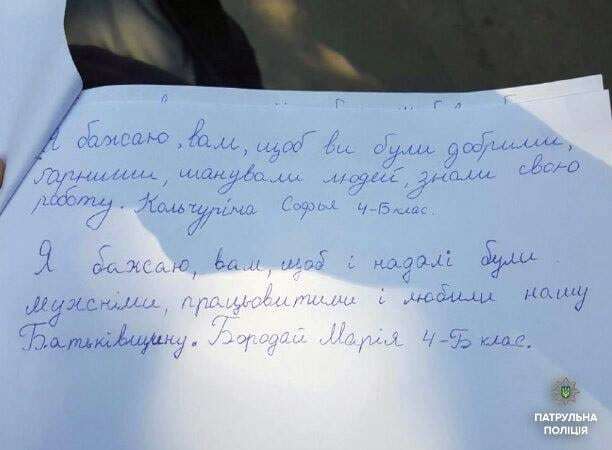 Я бажаю, вам, щоб ви були добрими,
гарними, шанували людей, знали свою
роботу. Кольчуріна Софья 4-Б клас.
Я бажаю, вам, щоб і надалі були
мужніми, працьовитими і любили нашу
Батьківщину. Бородай Марія 4-Б клас.
ПАТРУЛЬНА
ПОЛІЦІЯ